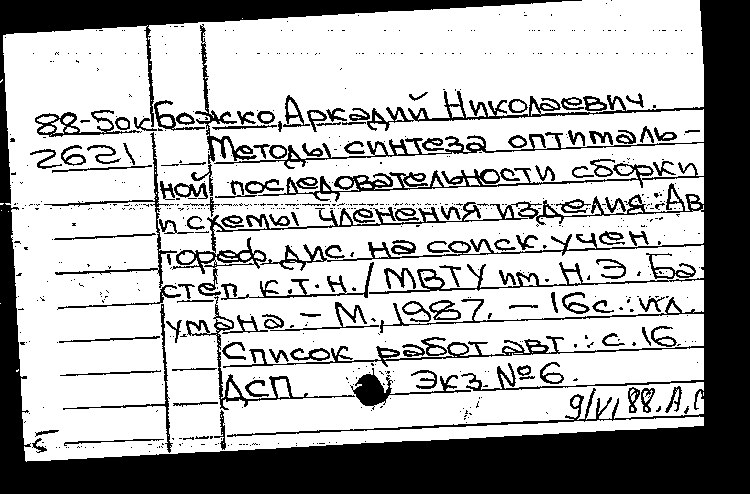 88-5ок Божко, Аркадий Николаевич.
2621 Методы синтеза оптималь-
ной последовательности сборки
и схемы членения изделия: Ав
тореф. дис. на соиск. учен.
степ. к.т.н. / МВТУ им. Н.Э. Ба-
умана. - М., 1987. - 16с.: ил.
Список работ авт.: с.16
ДСП. Экз №6.
9/VI 88. А,